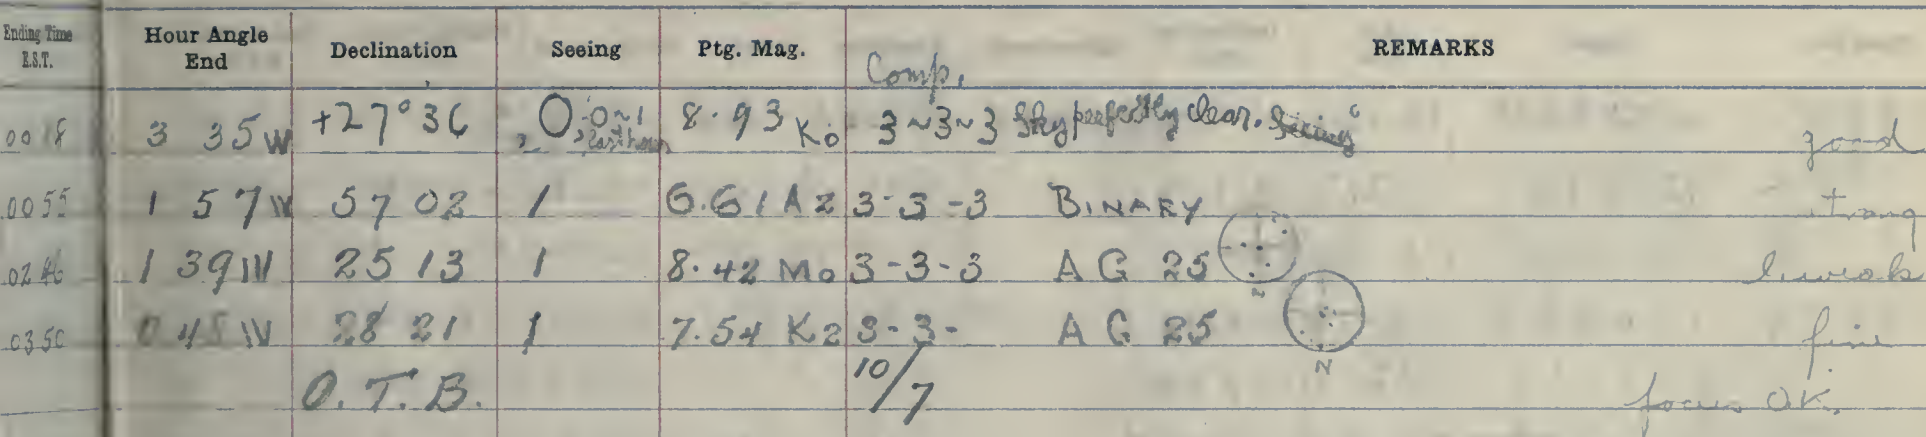 Ending Time E.S.T. Hour Angle End Declination Seeing Ptg. Mag. REMARKS
Comp.
0018 3 35 W +27° 36 0 0~1 last hour 8.93 K0 3~3~3 Sky perfectly clear. Seeing good
0055 1 57 W 57 02 1 6.61 A2 3-3-3 BINARY
0246 1 39 W 25 13 1 8.42 M0 3-3-3 AG 25 N l. weak
0350 0 45 W 28 21 1 7.54 K2 3-3- AG 25 N fine
O.T.B. 10/7 focus OK.